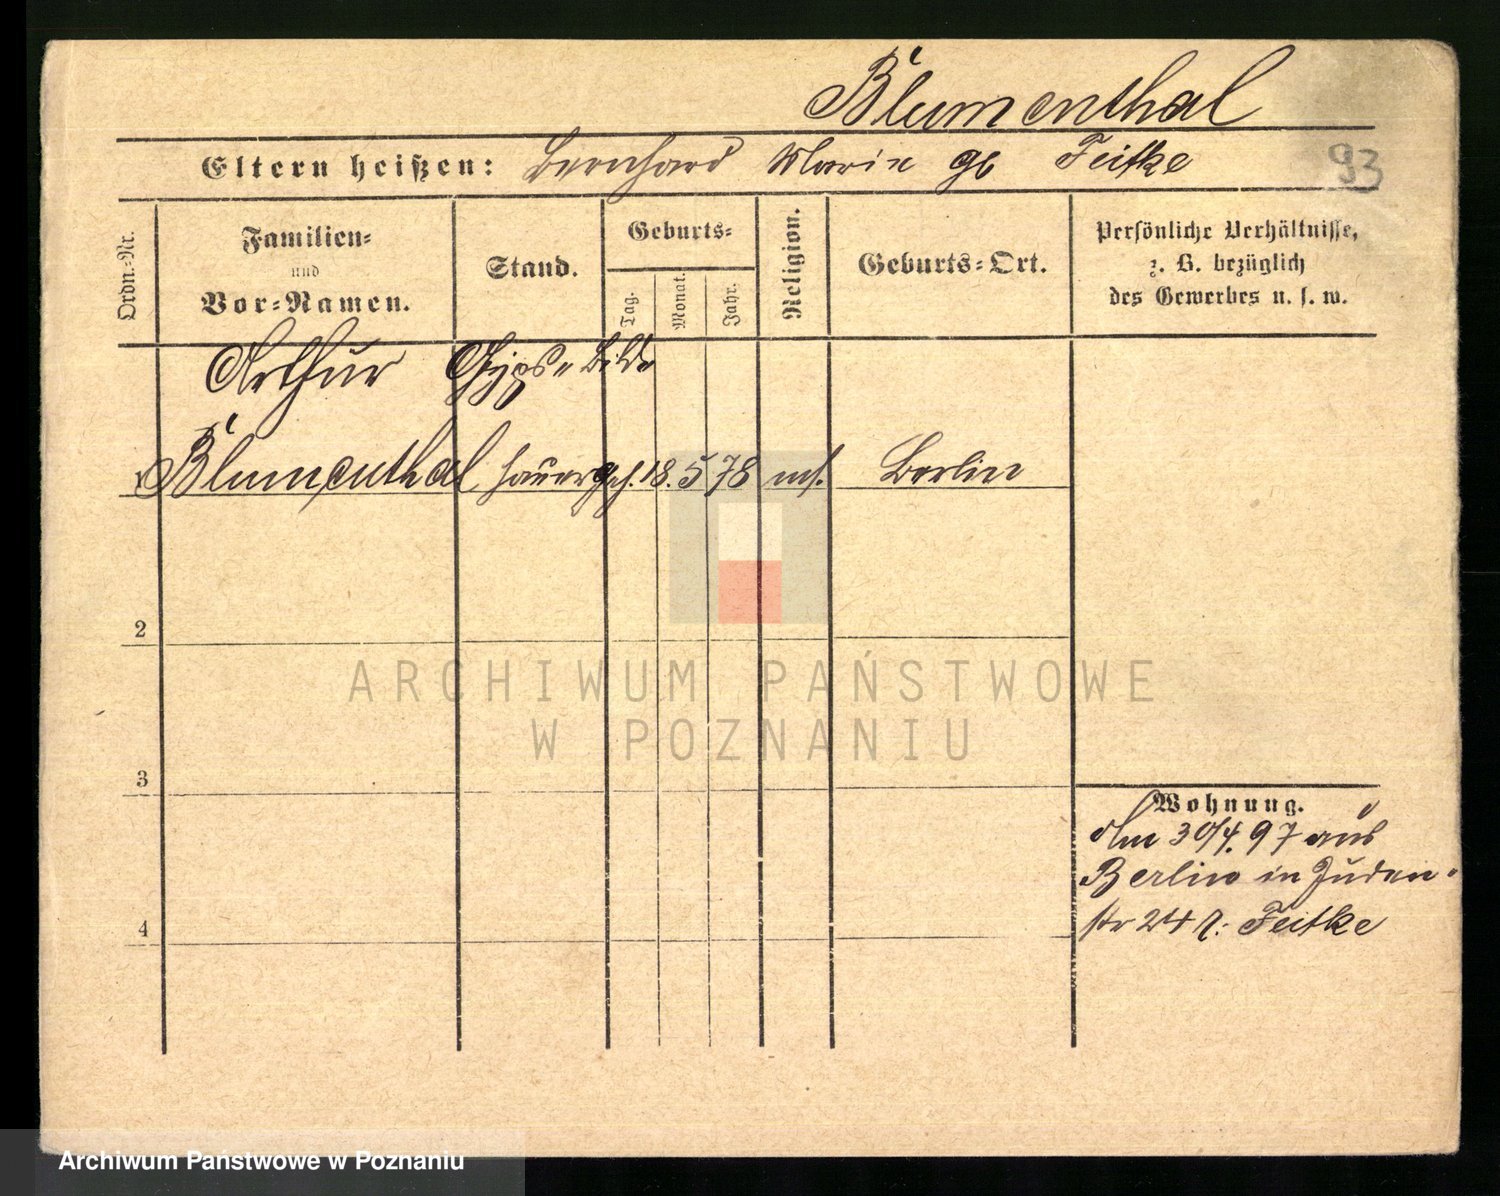 Blumenthal
Eltern heißen: Bernhard Marie gb Feitke
93
Ordn.-Nr.
Familien-
und
Vor-Namen.
Stand.
Geburts-
Tag.
Monat.
Jahr.
Religion.
Geburts-Ort.
Persönliche Verhältnisse,
z. B. bezüglich
des Gewerbes u. s. w.
Arthur Gyps u Bild
1 Blumenthal hauer geh. 18. 5 78 Berlin
2
3
4
Wohnung.
Am 30/4. 97 aus
Berlin in Juden
str 24 Feitke
ARCHIWUM PAŃSTWOWE
W POZNANIU
Archiwum Państwowe w Poznaniu